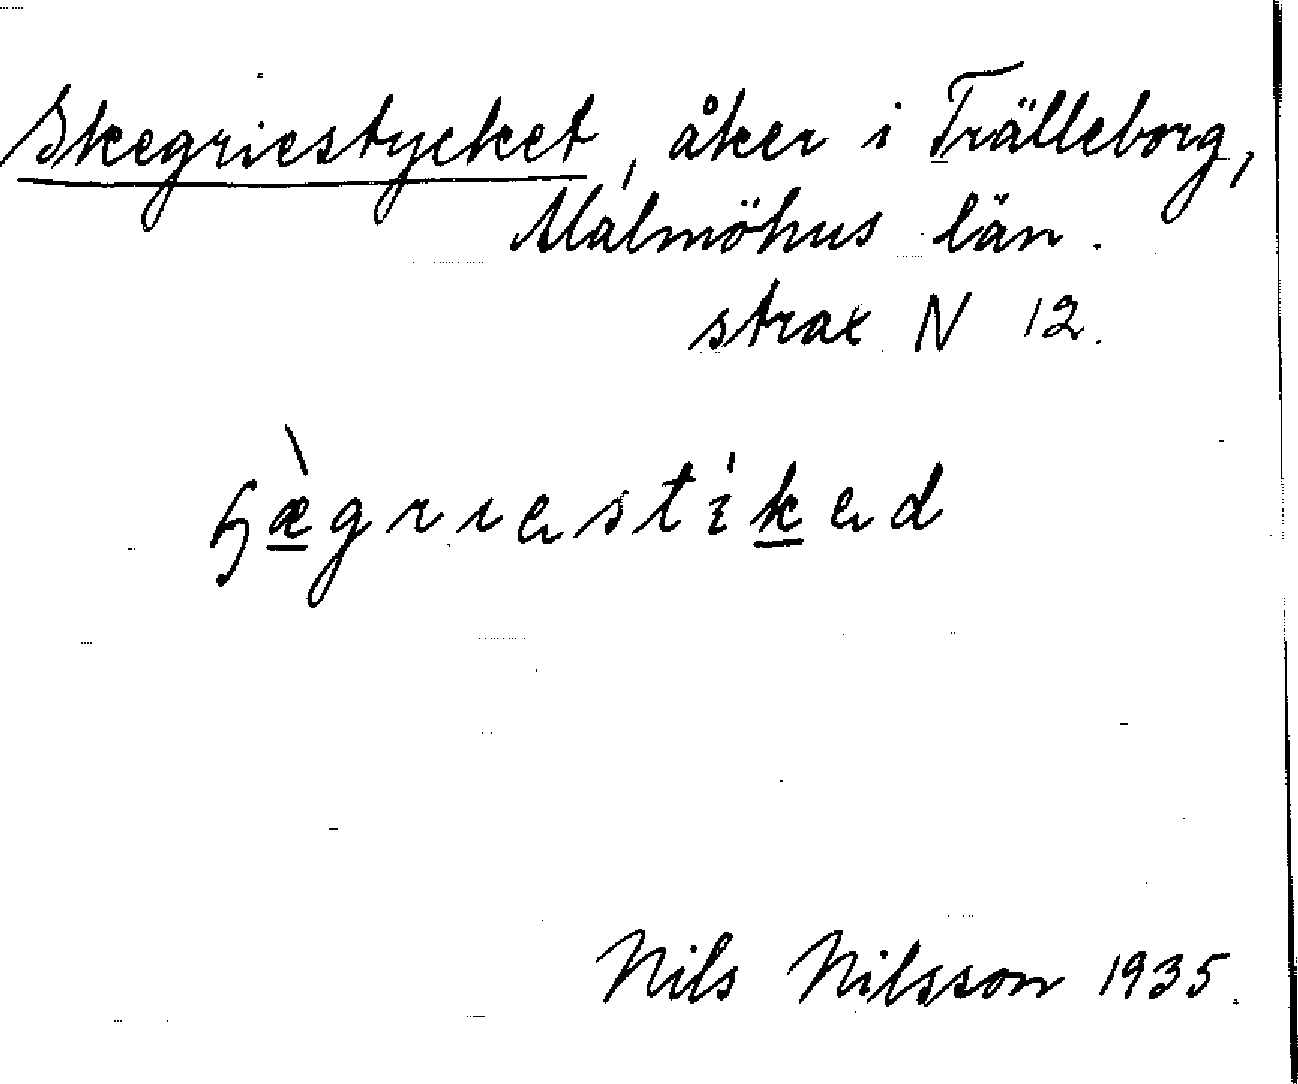 Skegriestycket, åker i Trälleborg,
Malmöhus län.
strax N 12.
ɧæ̠̀grıɐstɪ́k̠ɐd
Nils Nilsson 1935.